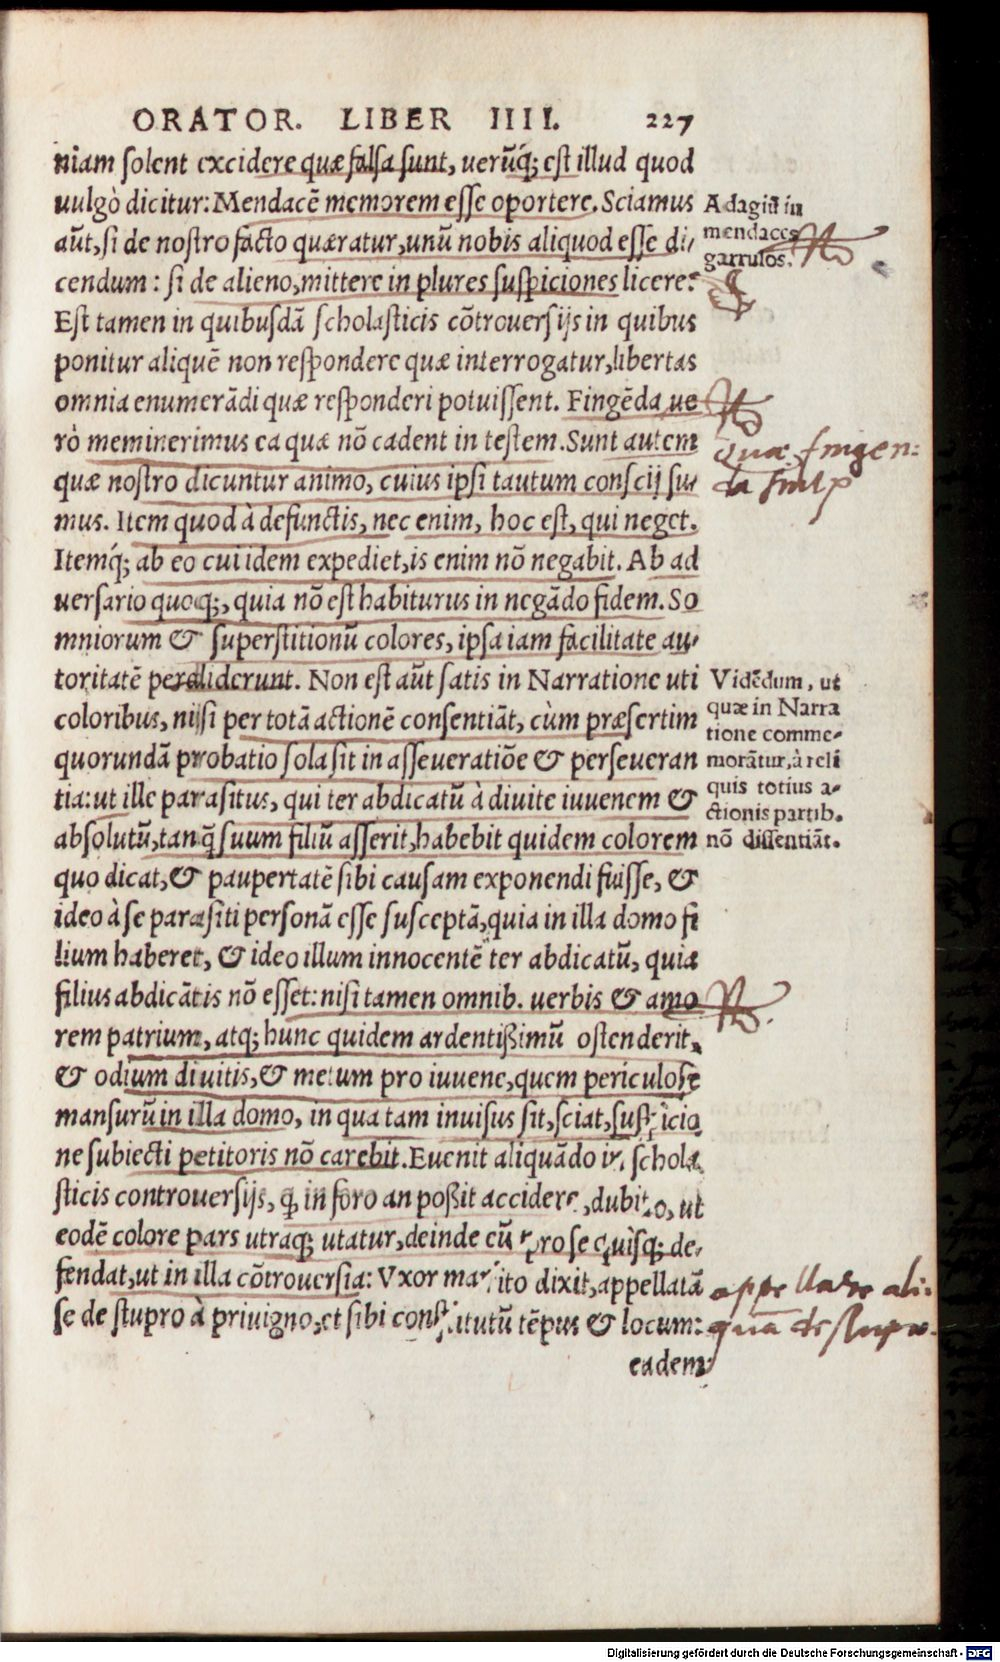 ORATOR. LIBER IIII. 227
niam solent excidere quæ falsa sunt, uerũq́; est illud quod
uulgò dicitur: Mendacē memorem esse oportere. Sciamus
aũt, si de nostro facto quæratur, unũ nobis aliquod esse di-
cendum: si de alieno, mittere in plures suspiciones licere.
Est tamen in quibusdã scholasticis cõtrouersijs in quibus
ponitur aliquē non respondere quæ interrogatur, libertas
omnia enumerãdi quæ responderi potuissent. Fingēda ue
rò meminerimus ea quæ nõ cadent in testem. Sunt autem
quæ nostro dicuntur animo, cuius ipsi tautum conscij su-
mus. Item quod à defunctis, nec enim, hoc est, qui neget.
Itemq́; ab eo cui idem expediet, is enim nõ negabit. Ab ad
uersario quoq;, quia nõ est habiturus in negãdo fidem. So
mniorum & superstitionũ colores, ipsa iam facilitate au-
toritatē perdiderunt. Non est aũt satis in Narratione uti
coloribus, nisi per totã actionē consentiãt, cùm præsertim
quorundã probatio sola sit in asseueratiõe & perseueran
tia: ut ille parasitus, qui ter abdicatũ à diuite iuuenem &
absolutũ, tanq̃ suum filiũ asserit, habebit quidem colorem
quo dicat, & paupertatē sibi causam exponendi fuisse, &
ideo à se parasiti personã esse susceptã, quia in illa domo fi
lium haberet, & ideo illum innocentē ter abdicatũ, quia
filius abdicãtis nõ esset: nisi tamen omnib. uerbis & amo
rem patrium, atq; hunc quidem ardentißimũ ostenderit,
& odium diuitis, & metum pro iuuene, quem periculose
mansurũ in illa domo, in qua tam inuisus sit, sciat, suspicio
ne subiecti petitoris nõ carebit. Euenit aliquãdo in schola
sticis controuersijs, q̃ in foro an poßit accidere, dubito, ut
eodē colore pars utraq; utatur, deinde cũ pro se quisq; de-
fendat, ut in illa cõtrouersia: Vxor marito dixit, appellatã
se de stupro à priuigno, et sibi constitutũ tēpus & locum:
eadem
Adagiũ in
mendaces
garrulos.
Quæ fingen:
da
Vidēdum, ut
quæ in Narra
tione comme-
morãtur, à reli
quis totius a-
ctionis partib.
nõ dissentiãt.
appellare ali:
quã de stupro.
Digitalisierung gefördert durch die Deutsche Forschungsgemeinschaft - DFG